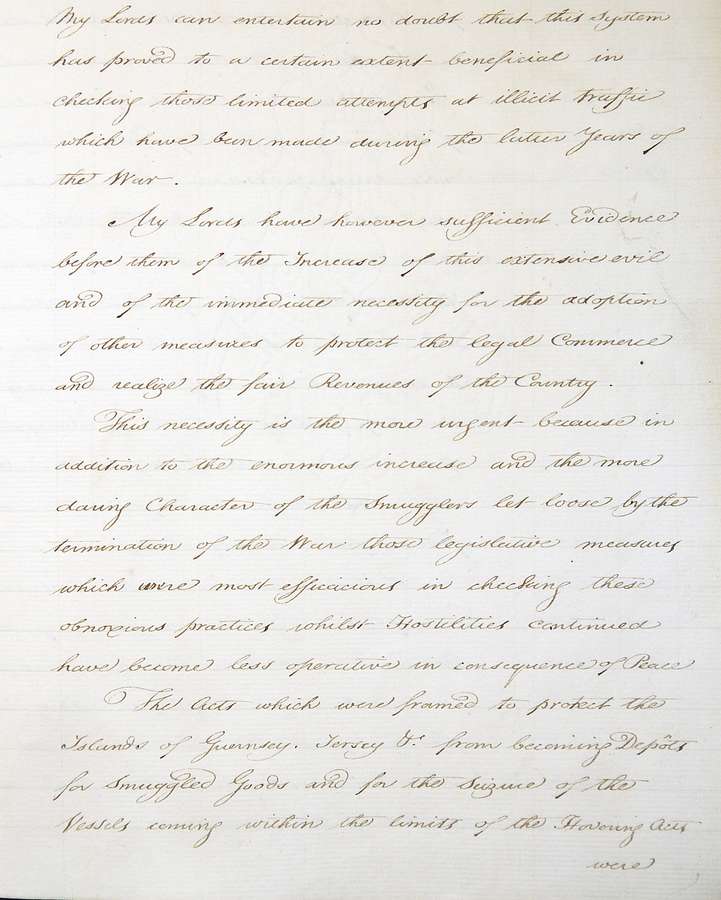 My Lords can entertain no doubt that this System
has proved to a certain extent beneficial in
checking those limited attempts at illicit traffic
which have been made during the latter Years of
the War.
My Lords have however sufficient Evidence
before them of the Increase of this extensive evil
and of the immediate necessity for the adoption
of other measures to protect the legal Commerce
and realize the fair Revenues of the Country.
This necessity is the more urgent because in
addition to the enormous increase and the more
daring Character of the Smugglers let loose by the
termination of the War those legislative measures
which were most efficacious in checking these
obnoxious practices whilst Hostilities continued
have become less operative in consequence of Peace
The Acts which were framed to protect the
Islands of Guernsey. Jersey &c. from becoming Depôts
for Smuggled Goods and for the Seizure of the
Vessels coming within the limits of the Hovering Acts
were